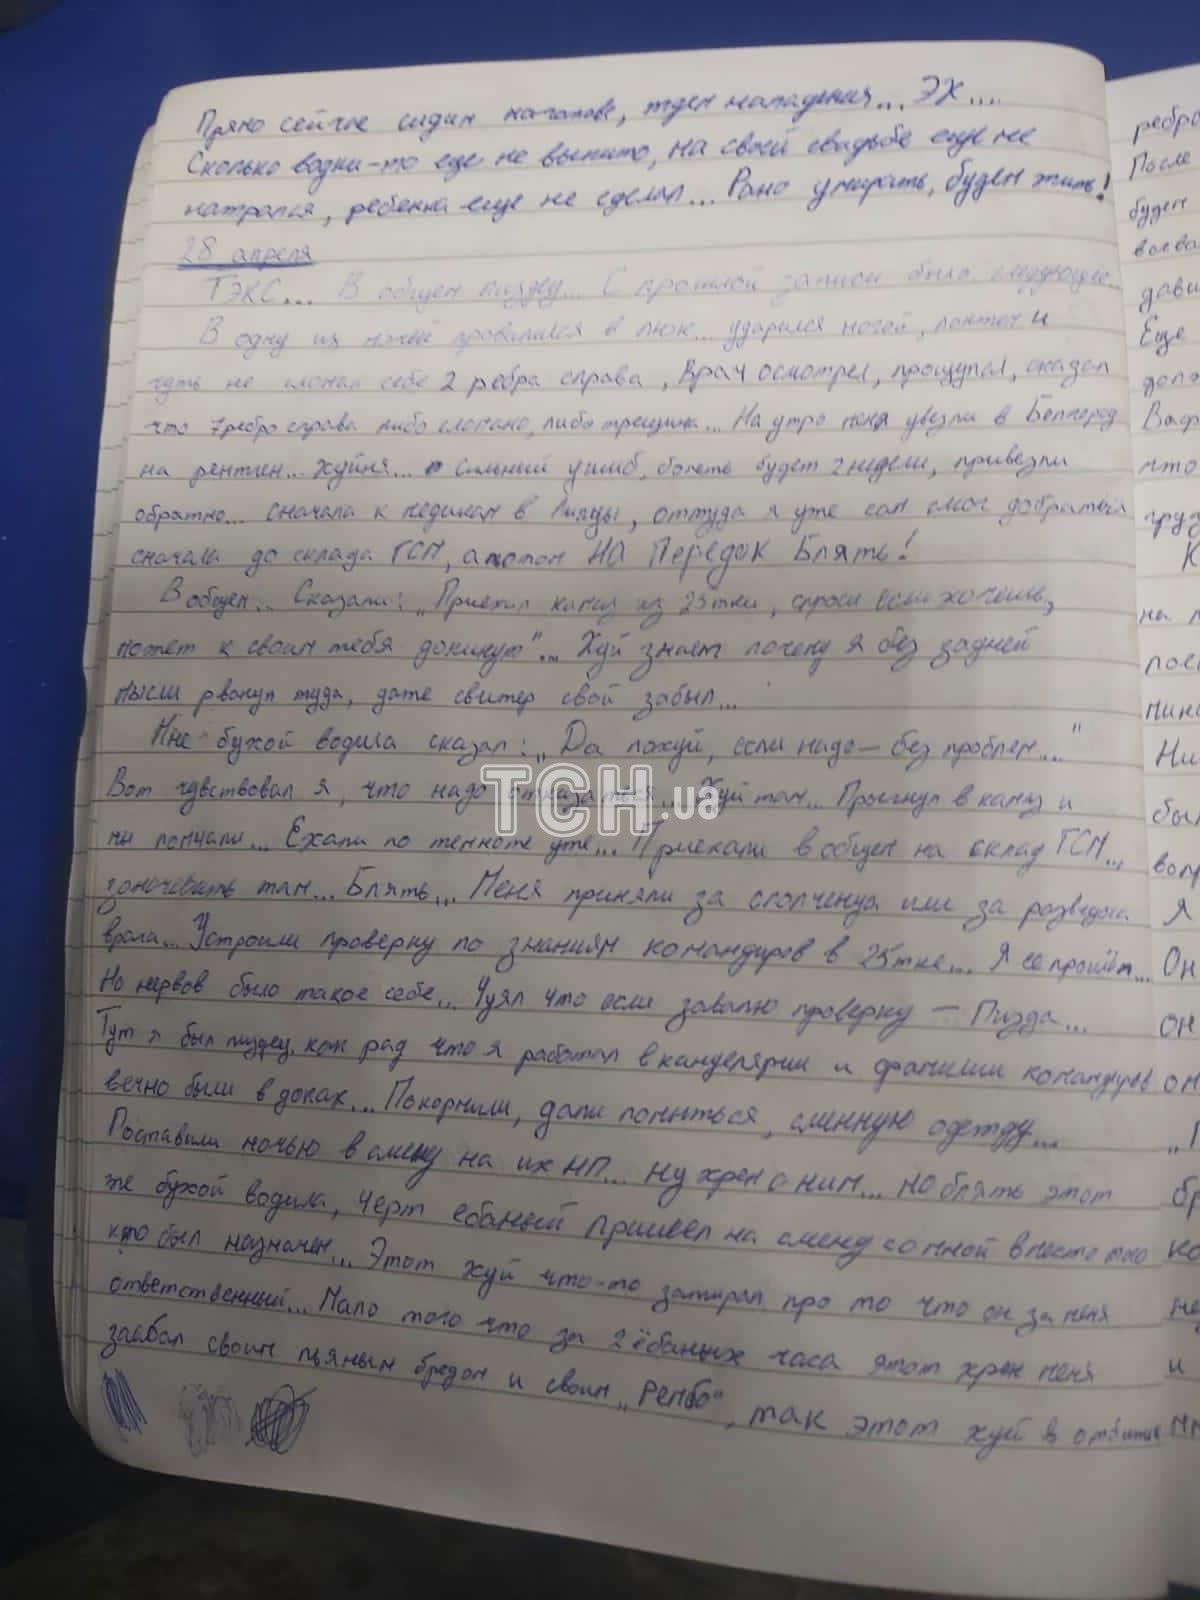 Прямо сейчас сидим на готове, ждем нападения... ЭХ....
Сколько водки-то еще не выпито, на своей свадьбе еще не
нажрался, ребенка еще не сделал... Рано умирать, будем жить!
28 апреля
ТЭКС... В общем пиздец... С прошлой записи было следующее..
В одну из ночей провалился в люк... ударился ногой, локтем и
чуть не сломал себе 2 ребра справа, Врач осмотрел, прощупал, сказал
что 7 ребро справа либо сломано, либо трещина... На утро меня увезли в Белгород
на рентген... Хуйня... сильный ушиб, болеть будет 2 недели, привезли
обратно... сначала к медикам в , оттуда я уже сам смог добраться
сначала до склада ГСМ, а потом НА Передок Блять!
В общем.. Сказали: „Приехал камаз из 25тки, спроси если хочешь,
может к своим тебя докинут"... Хуй знает почему я без задней
мысли рванул туда, даже свитер свой забыл...
Мне бухой водила сказал: „Да похуй, если надо - без проблем..."
Вот чувствовал я, что надо отказаться... Хуй там... Прыгнул в камаз и
мы помчали... Ехали по темноте уже... Приехали в общем на склад ГСМ...
заночевать там... Блять... Меня приняли за ополченца или за разведоса
врага... Устроили проверку по знаниям командиров в 25тке... Я её прошёл...
Но нервов было такое себе... Чуял что если завалю проверку - Пизда...
Тут я был пиздец как рад что я работал в канцелярии и фамилии командиров
вечно были в доках... Покормили, дали помыться, сменную одежду...
Поставили ночью в смену на их НП... ну хрен с ним... но блять этот
же бухой водила, черт ебаный пришел на смену со мной вместо того
кто был назначен... Этот хуй что-то затирал про то что он за меня
ответственный... Мало того что за 2 ёбаных часа этот хрен меня
заебал своим пьяным бредом и своим „Рембо", так этот хуй в
ребро
После
будем
воева
дави
Еще
долж
Ваф
что
груз
К
на п
пос
мин
Ни
был
вопр
Я
Он
он
он
„П
бр
ко
не
и